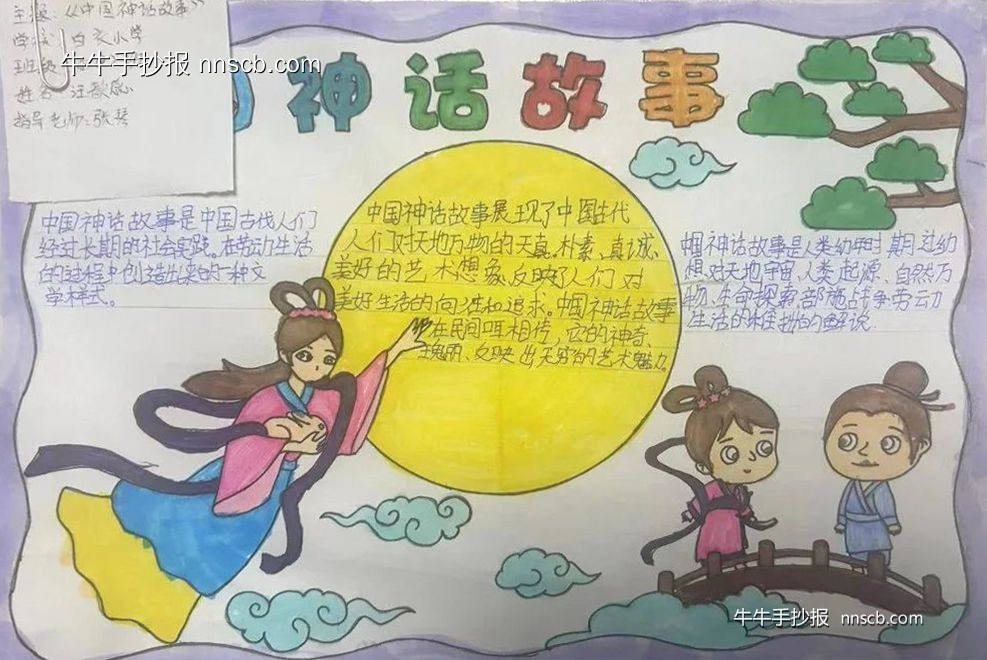 主题：《中国神话故事》
学校：白衣小学
班级
姓名：汪
指导老师：张琴
牛牛手抄报 nnscb.com
神话故事
中国神话故事是中国古代人们
经过长期的社会实践。在劳动生活
的过程中创造出来的一种文
学样式。
中国神话故事展现了中国古代
人们对天地万物的天真、朴素、真诚、
美好的艺术想象、反映了人们对
美好生活的向往和追求。中国神话故事
在民间口耳相传，它的神奇、
瑰丽、反映出无穷的艺术魅力。
中国神话故事是人类幼年时期过幼
想对天地宇宙、人类起源、自然万
物、生命探索部施战争劳动
生活的稚拙的解说
牛牛手抄报 nnscb.com